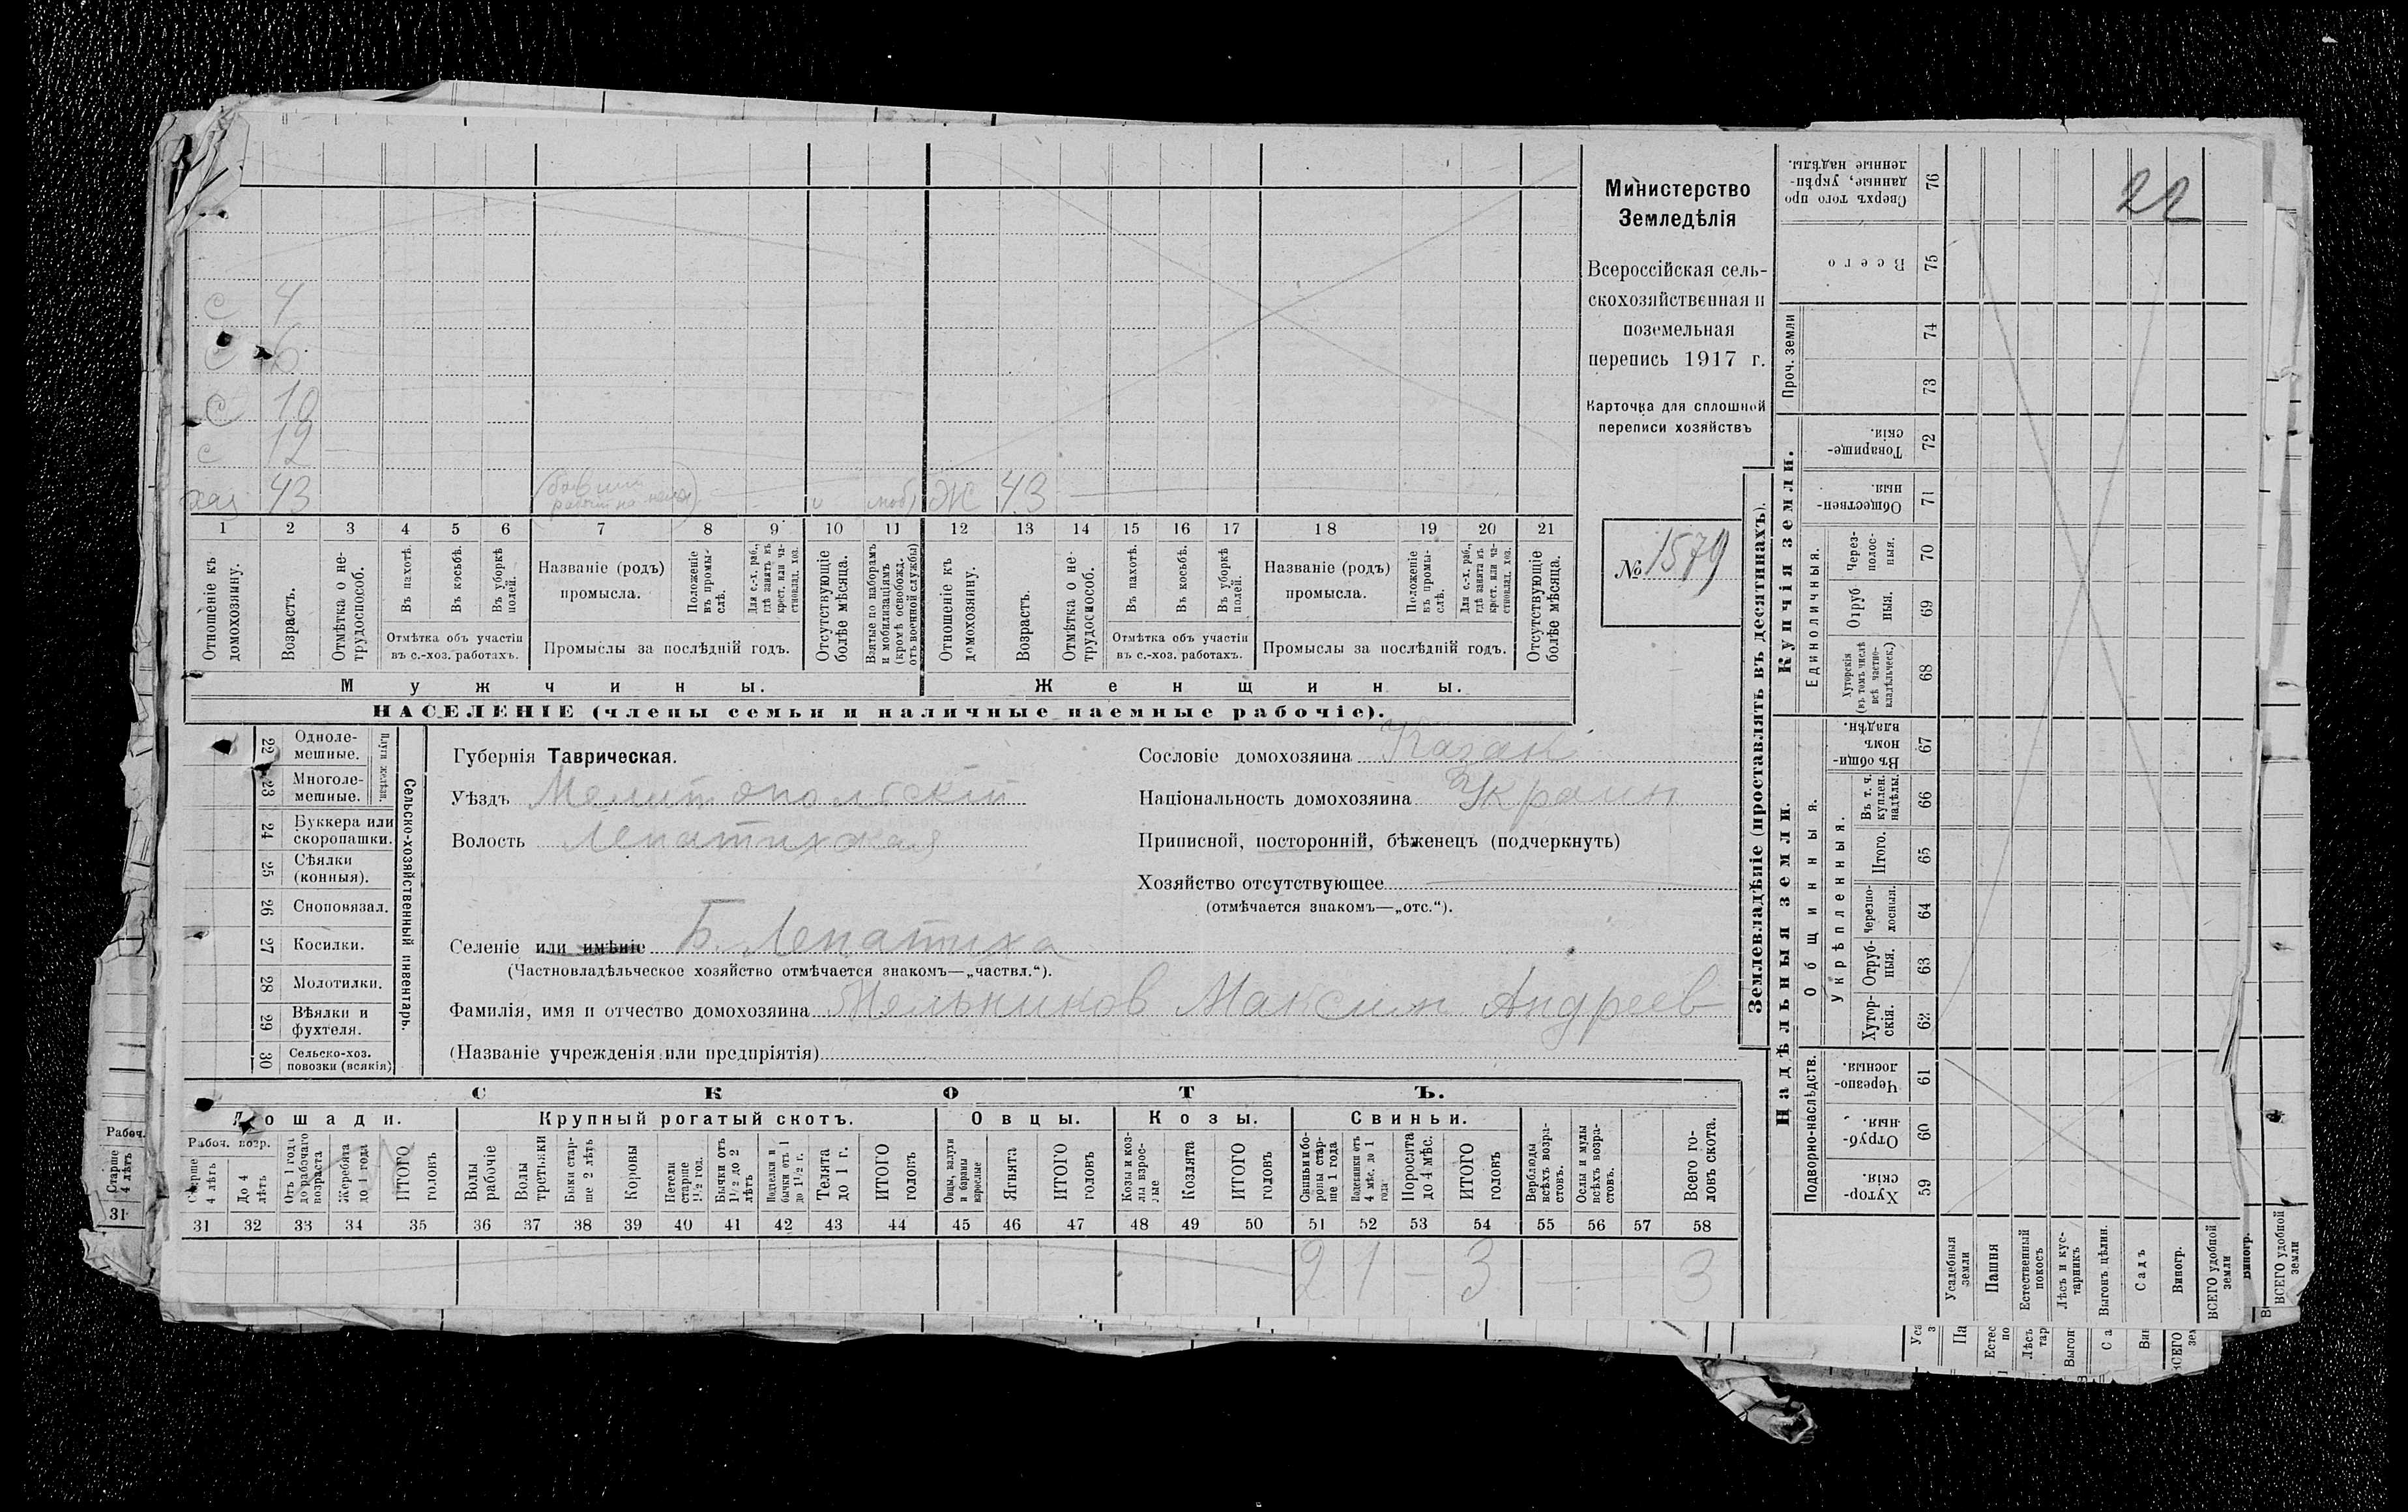 с 4
с 6
с 10
с 12
хоз 43 Ж 43
1 2 3 4 5 6 7 8 9 10 11 12 13 14 15 16 17 18 19 20 21
Отношеніе къ домохозяину.
Возрастъ.
Отмѣтка о не-трудоспособ.
Въ пахотѣ.
Въ косьбѣ.
Въ уборкѣ полей.
Отмѣтка объ участіи въ с.-хоз. работахъ.
Названіе (родъ) промысла.
Положеніе въ промы-слѣ.
Для с.-х. раб., гдѣ занятъ въ крест. или ча-стновлад. хоз.
Промыслы за послѣдній годъ.
Отсутствующіе болѣе мѣсяца.
Взятые по наборамъ и мобилизаціямъ (кромѣ освобожд. отъ военной службы)
Отношеніе къ домохозяину.
Возрастъ.
Отмѣтка о не-трудоспособ.
Въ пахотѣ.
Въ косьбѣ.
Въ уборкѣ полей.
Отмѣтка объ участіи въ с.-хоз. работахъ.
Названіе (родъ) промысла.
Положеніе въ промы-слѣ.
Для с.-х. раб., гдѣ занята въ крест. или ча-стновлад. хоз.
Промыслы за послѣдній годъ.
Отсутствующіе болѣе мѣсяца.
Мужчины.
Женщины.
НАСЕЛЕНІЕ (члены семьи и наличные наемные рабочіе).
Министерство
Земледѣлія
Всероссійская сель-
скохозяйственная и
поземельная
перепись 1917 г.
Карточка для сплошной
переписи хозяйствъ
№ 1579
22 Одноле-мешные.
23 Многоле-мешные.
Плуги желѣзн.
24 Буккера или скоропашки.
25 Сѣялки (конныя).
26 Сноповязал.
27 Косилки.
28 Молотилки.
29 Вѣялки и фухтеля.
30 Сельско-хоз. повозки (всякія)
Сельско-хозяйственный инвентарь.
Губернія Таврическая.
Уѣздъ Мелитопольскій
Волость Лепатихская
Селеніе или имѣніе Б. Лепатиха
(Частновладѣльческое хозяйство отмѣчается знакомъ—„частвл.“).
Фамилія, имя и отчество домохозяина Максим Андреев
(Названіе учрежденія или предпріятія)
Сословіе домохозяина
Національность домохозяина Украин
Приписной, посторонній, бѣженецъ (подчеркнуть)
Хозяйство отсутствующее
(отмѣчается знакомъ—„отс.“).
СКОТЪ.
Лошади.
Крупный рогатый скотъ.
Овцы.
Козы.
Свиньи.
Рабоч. возр.
Старше 4 лѣтъ
До 4 лѣтъ
Отъ 1 года до рабочаго возраста
Жеребята до 1 года
ИТОГО головъ
Волы рабочіе
Волы третьяки
Быки стар-ше 2 лѣтъ
Коровы
Нетели старше 1½ год.
Бычки отъ 1½ до 2 лѣтъ
Подтелки и бычки отъ 1 до 1½ г.
Телята до 1 г.
ИТОГО головъ
Овцы, валухи и бараны взрослые
Ягнята
ИТОГО головъ
Козы и коз-лы взрос-лые
Козлята
ИТОГО головъ
Свиньи и бо-ровы стар-ше 1 года
Подсвинки отъ 4 мѣс. до 1 года
Поросята до 4 мѣс.
ИТОГО головъ
Верблюды всѣхъ возра-стовъ.
Ослы и мулы всѣхъ возра-стовъ.
Всего го-ловъ скота.
31 32 33 34 35 36 37 38 39 40 41 42 43 44 45 46 47 48 49 50 51 52 53 54 55 56 57 58
2 1 — 3 — 3
Землевладѣніе (проставлять въ десятинахъ).
Надѣльныя земли.
Купчія земли.
Проч. земли
Подворно-наслѣдств.
Общинныя.
Укрѣпленныя.
Единоличныя.
76 Сверхъ того про-данные, укрѣп-ленные надѣлы.
75 Всего
74
73
72 Товарище-скія.
71 Обществен-ныя.
70 Через-полос-ныя.
69 Отруб-ныя.
68 Хуторскія (въ томъ числѣ всѣ частно-владѣльческ.)
67 Въ общин-номъ владѣн.
66 Въ т. ч. куплен. надѣлы.
65 Итого.
64 Черезпо-лосныя.
63 Отруб-ныя.
62 Хутор-скія.
61 Черезпо-лосныя.
60 Отруб-ныя.
59 Хутор-скія.
Усадебныя земли
Пашня
Естественный покосъ
Лѣсъ и кус-тарникъ
Выгонъ цѣлин.
Садъ
Виногр.
ВСЕГО удобной земли
22
Рабоч.
Старше 4 лѣтъ
31
Виногр.
ВСЕГО удобной земли